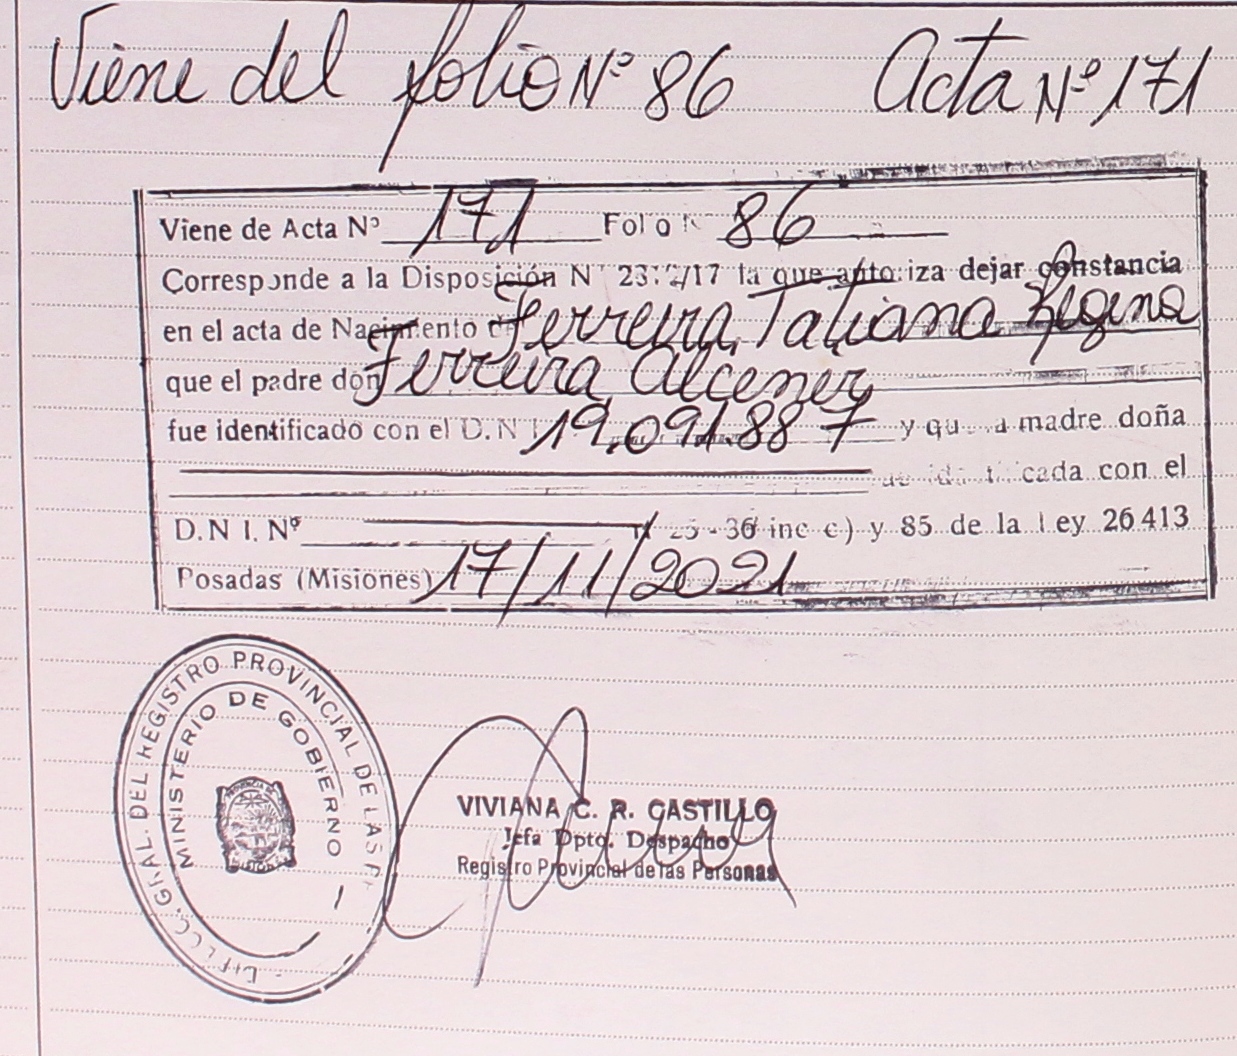 Viene del folio Nº 86 Acta Nº 171
Viene de Acta Nº 171 Folio N 86
Corresponde a la Disposición N 2372/17 la que autoriza dejar constancia
en el acta de Nacimiento de Ferreira, Tatiana Regina
que el padre don Ferreira, Alcener
fue identificado con el D.N.I 19.091.887 y que la madre doña
cada con el
D.N.I. Nº 25 - 36 inc c) y 85 de la Ley 26413
Posadas (Misiones) 17/11/2021
GRAL. DEL REGISTRO PROVINCIAL DE LAS P
MINISTERIO DE GOBIERNO
VIVIANA C. R. CASTILLO
Jefa Dpto. Despacho
Registro Provincial de las Personas